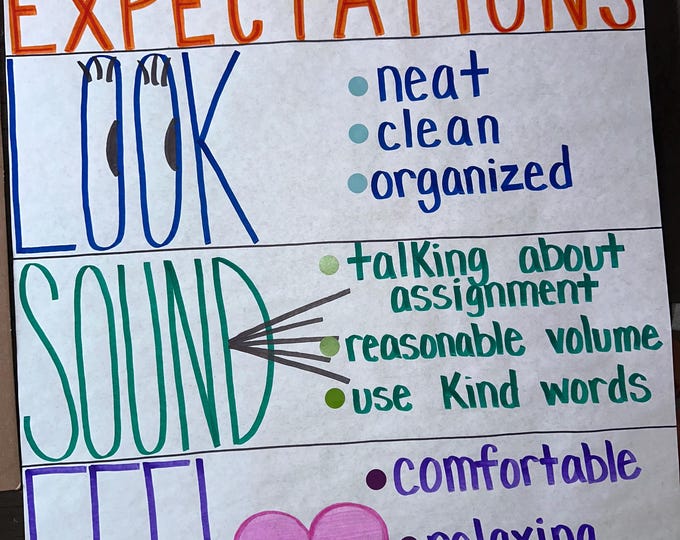 EXPECTATIONS
LOOK
neat
clean
organized
SOUND
talking about
assignment
reasonable volume
use kind words
FEEL
comfortable
relaxing